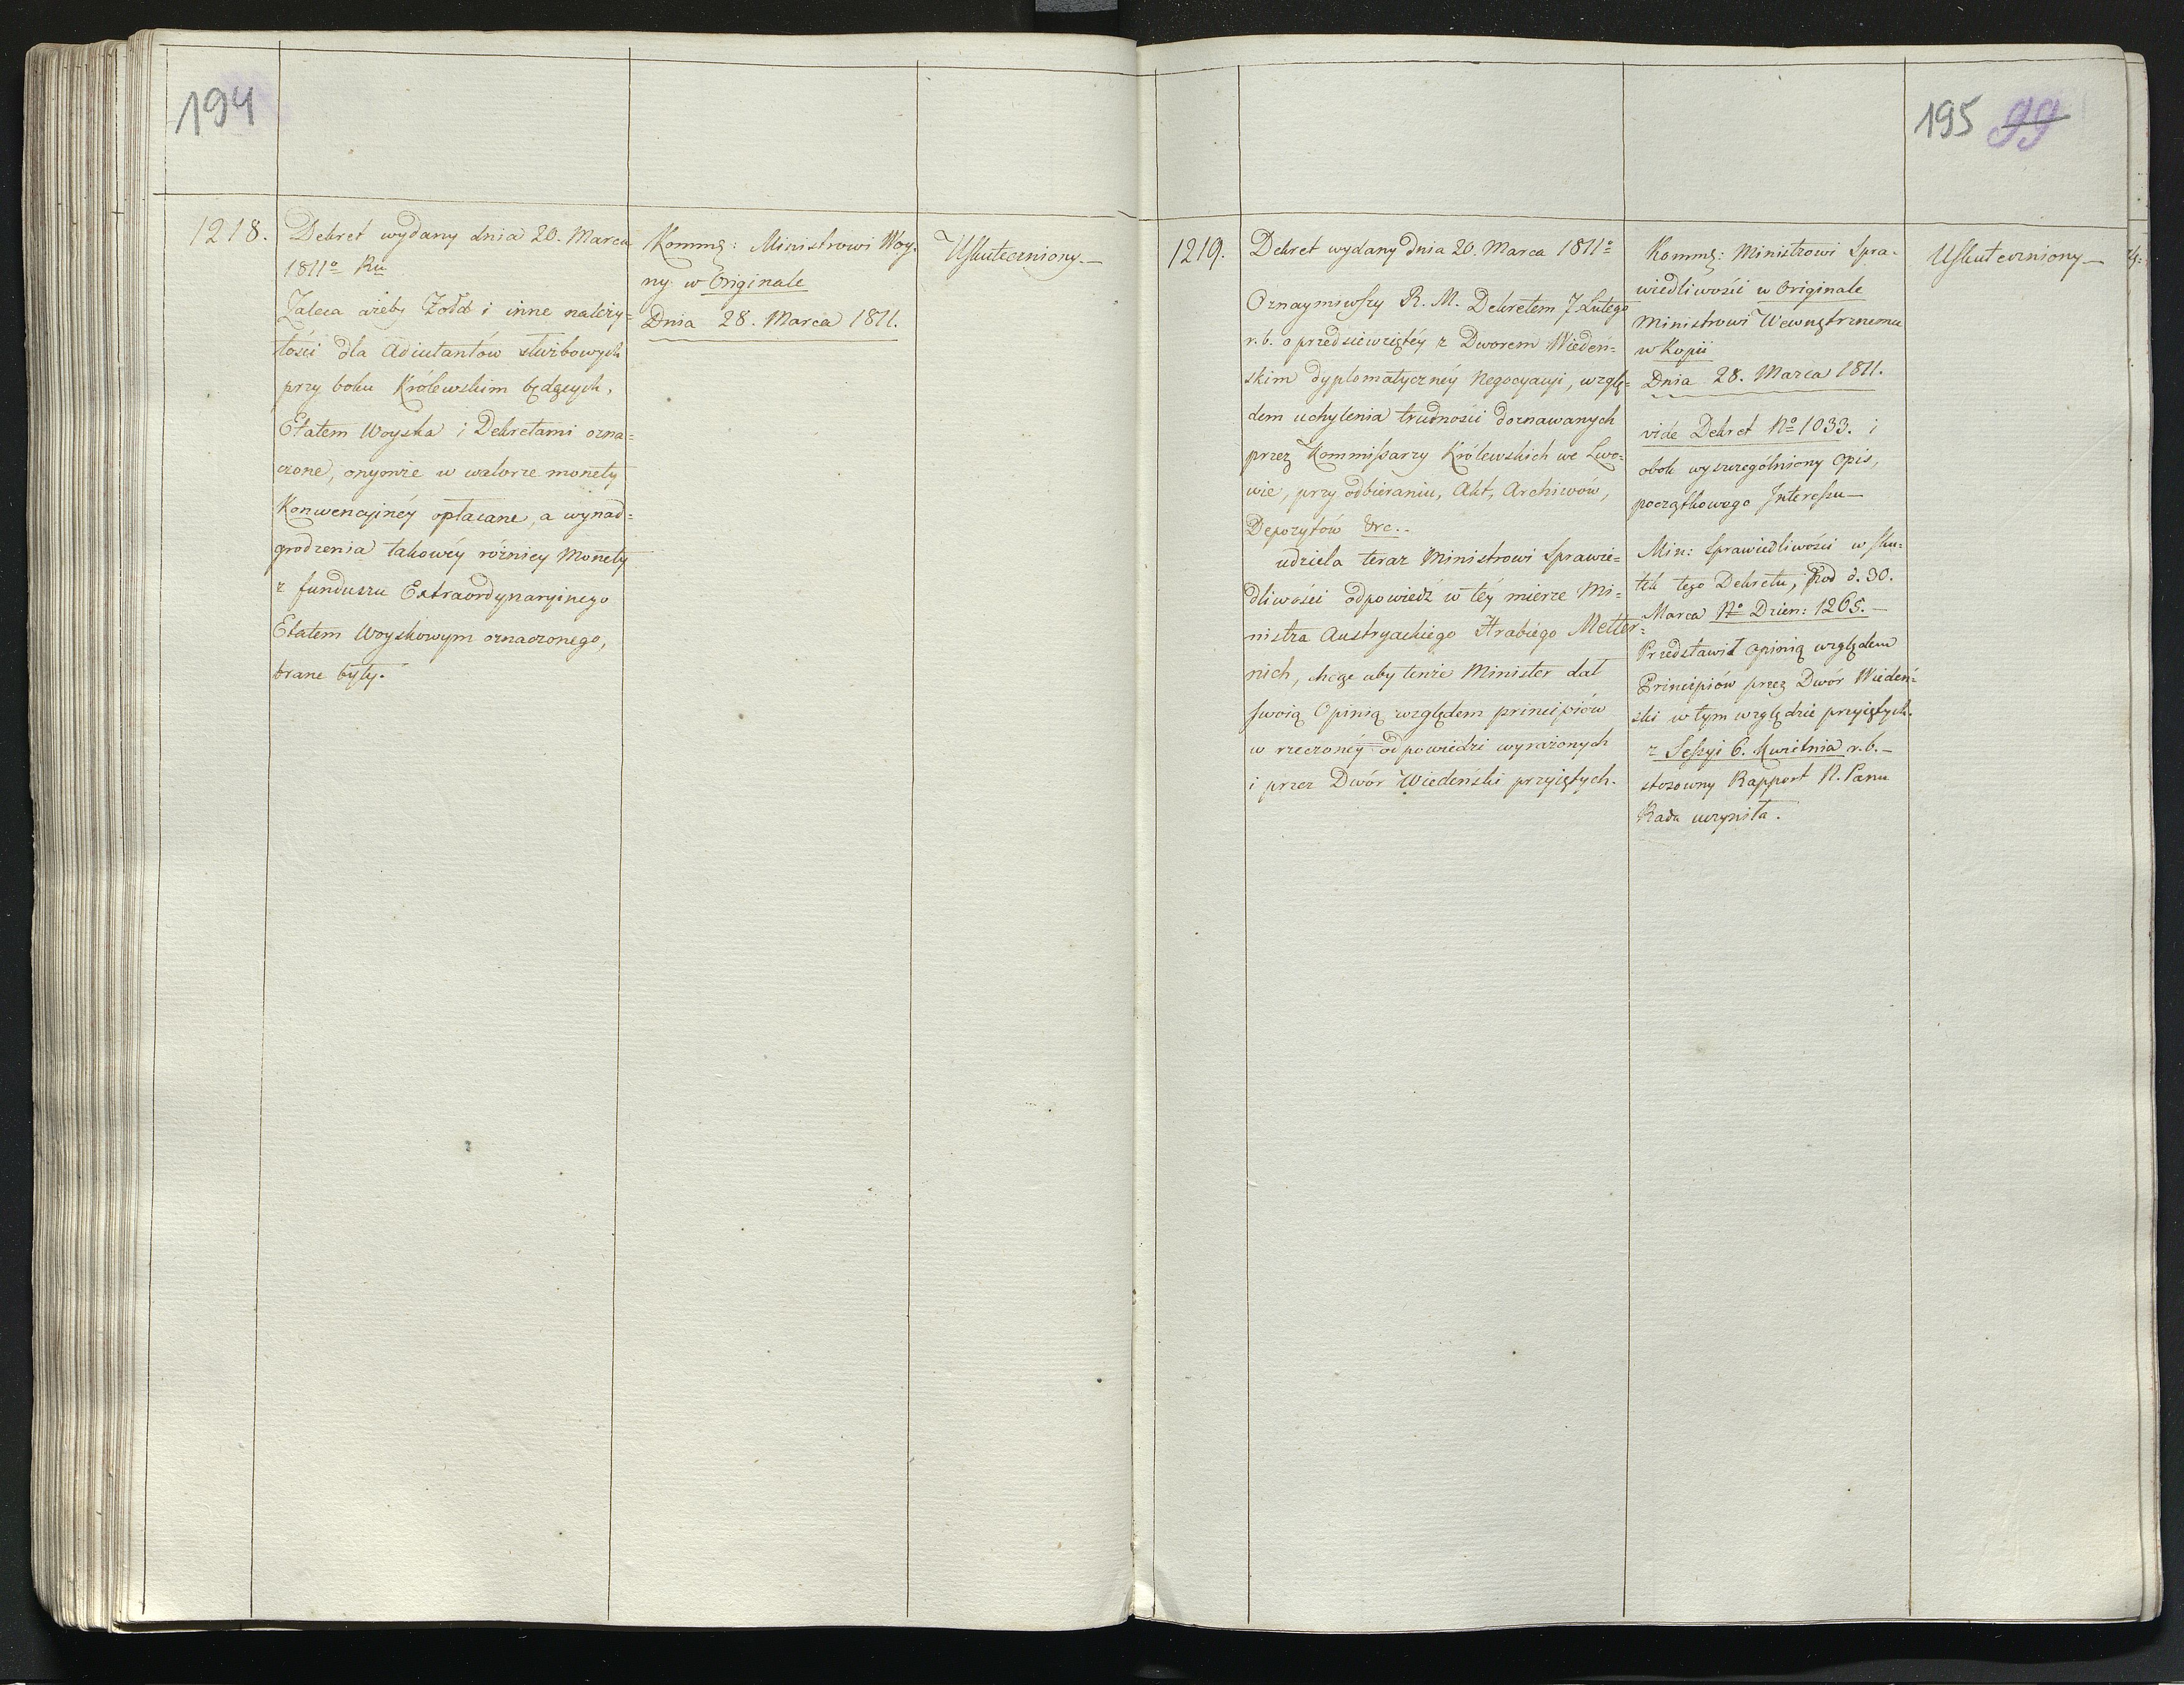 194
1218.
Dekret wydany dnia 20. Marca
1811o Ru
Zaleca ażeby Żołd i inne należy=
tości dla Adiutantów służbowych
przy boku Królewskim będących,
Etatem Woyska i Dekretami ozna=
czone, onymże w walorze monety
Konwencyinéy opłacane, a wynad=
grodzenia takowéy różnicy Monety
z funduszu Extraordynaryinego
Etatem Woyskowym oznaczonego,
brane były.
Kommg: Ministrowi Woy.
ny w Originale
Dnia 28. Marca 1811.
Uskuteczniony.—
195 99
1219.
Dekret wydany dnia 20. Marca 1811o
Oznaymiwszy R. M. Dekretem 7. Lutego
r. b. o przedsiewziętéy z Dworem Wiedeń=
skim dyplomatycznéy Negocyacyi, wzglę=
dem uchylenia trudności doznawanych
przez Kommissarzy Królewskich we Lwo=
wie, przy odbieraniu, Akt, Archiwów,
Depozytów &c..
udziela teraz Ministrowi Sprawie=
dliwości odpowiedź w téy mierze Mi=
nistra Austryackiego Hrabiego Metter=
nich, chcąc aby tenże Minister dał
swoią Opinią względem principiów
w rzeczonéy odpowiedzi wyrażonych
i przez Dwór Wiedeński przyiętych.
Kommg: Ministrowi Spra=
wiedliwości w Originale
Ministrowi Wewnętrznemu
w Kopii
Dnia 28. Marca 1811.
vide Dekret No 1033. i
obok wyszczególniony Opis,
początkowego Interessu—
Min: Sprawiedliwości w sku=
tek tego Dekretu, pod d. 30.
Marca No Dzien: 1265.—
Przedstawił opinią względem
Principiów przez Dwór Wiedeń=
ski w tym względzie przyiętych.
z Sessyi 6. Kwietnia r. b.—
stosowny Rapport N. Panu
Rada uczyniła.
Uskuteczniony—